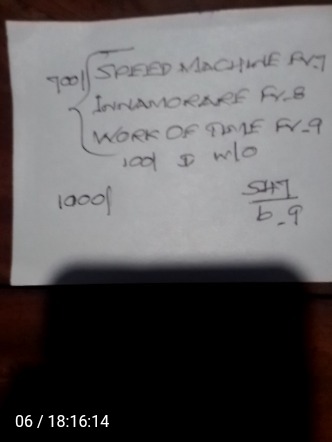 700/ SPEED MACHINE Fr.7
INNAMORARE Fr.8
WORK OF TIME Fr.9
100/ D W/O
1000/
5H7
6-9
06 / 18:16:14